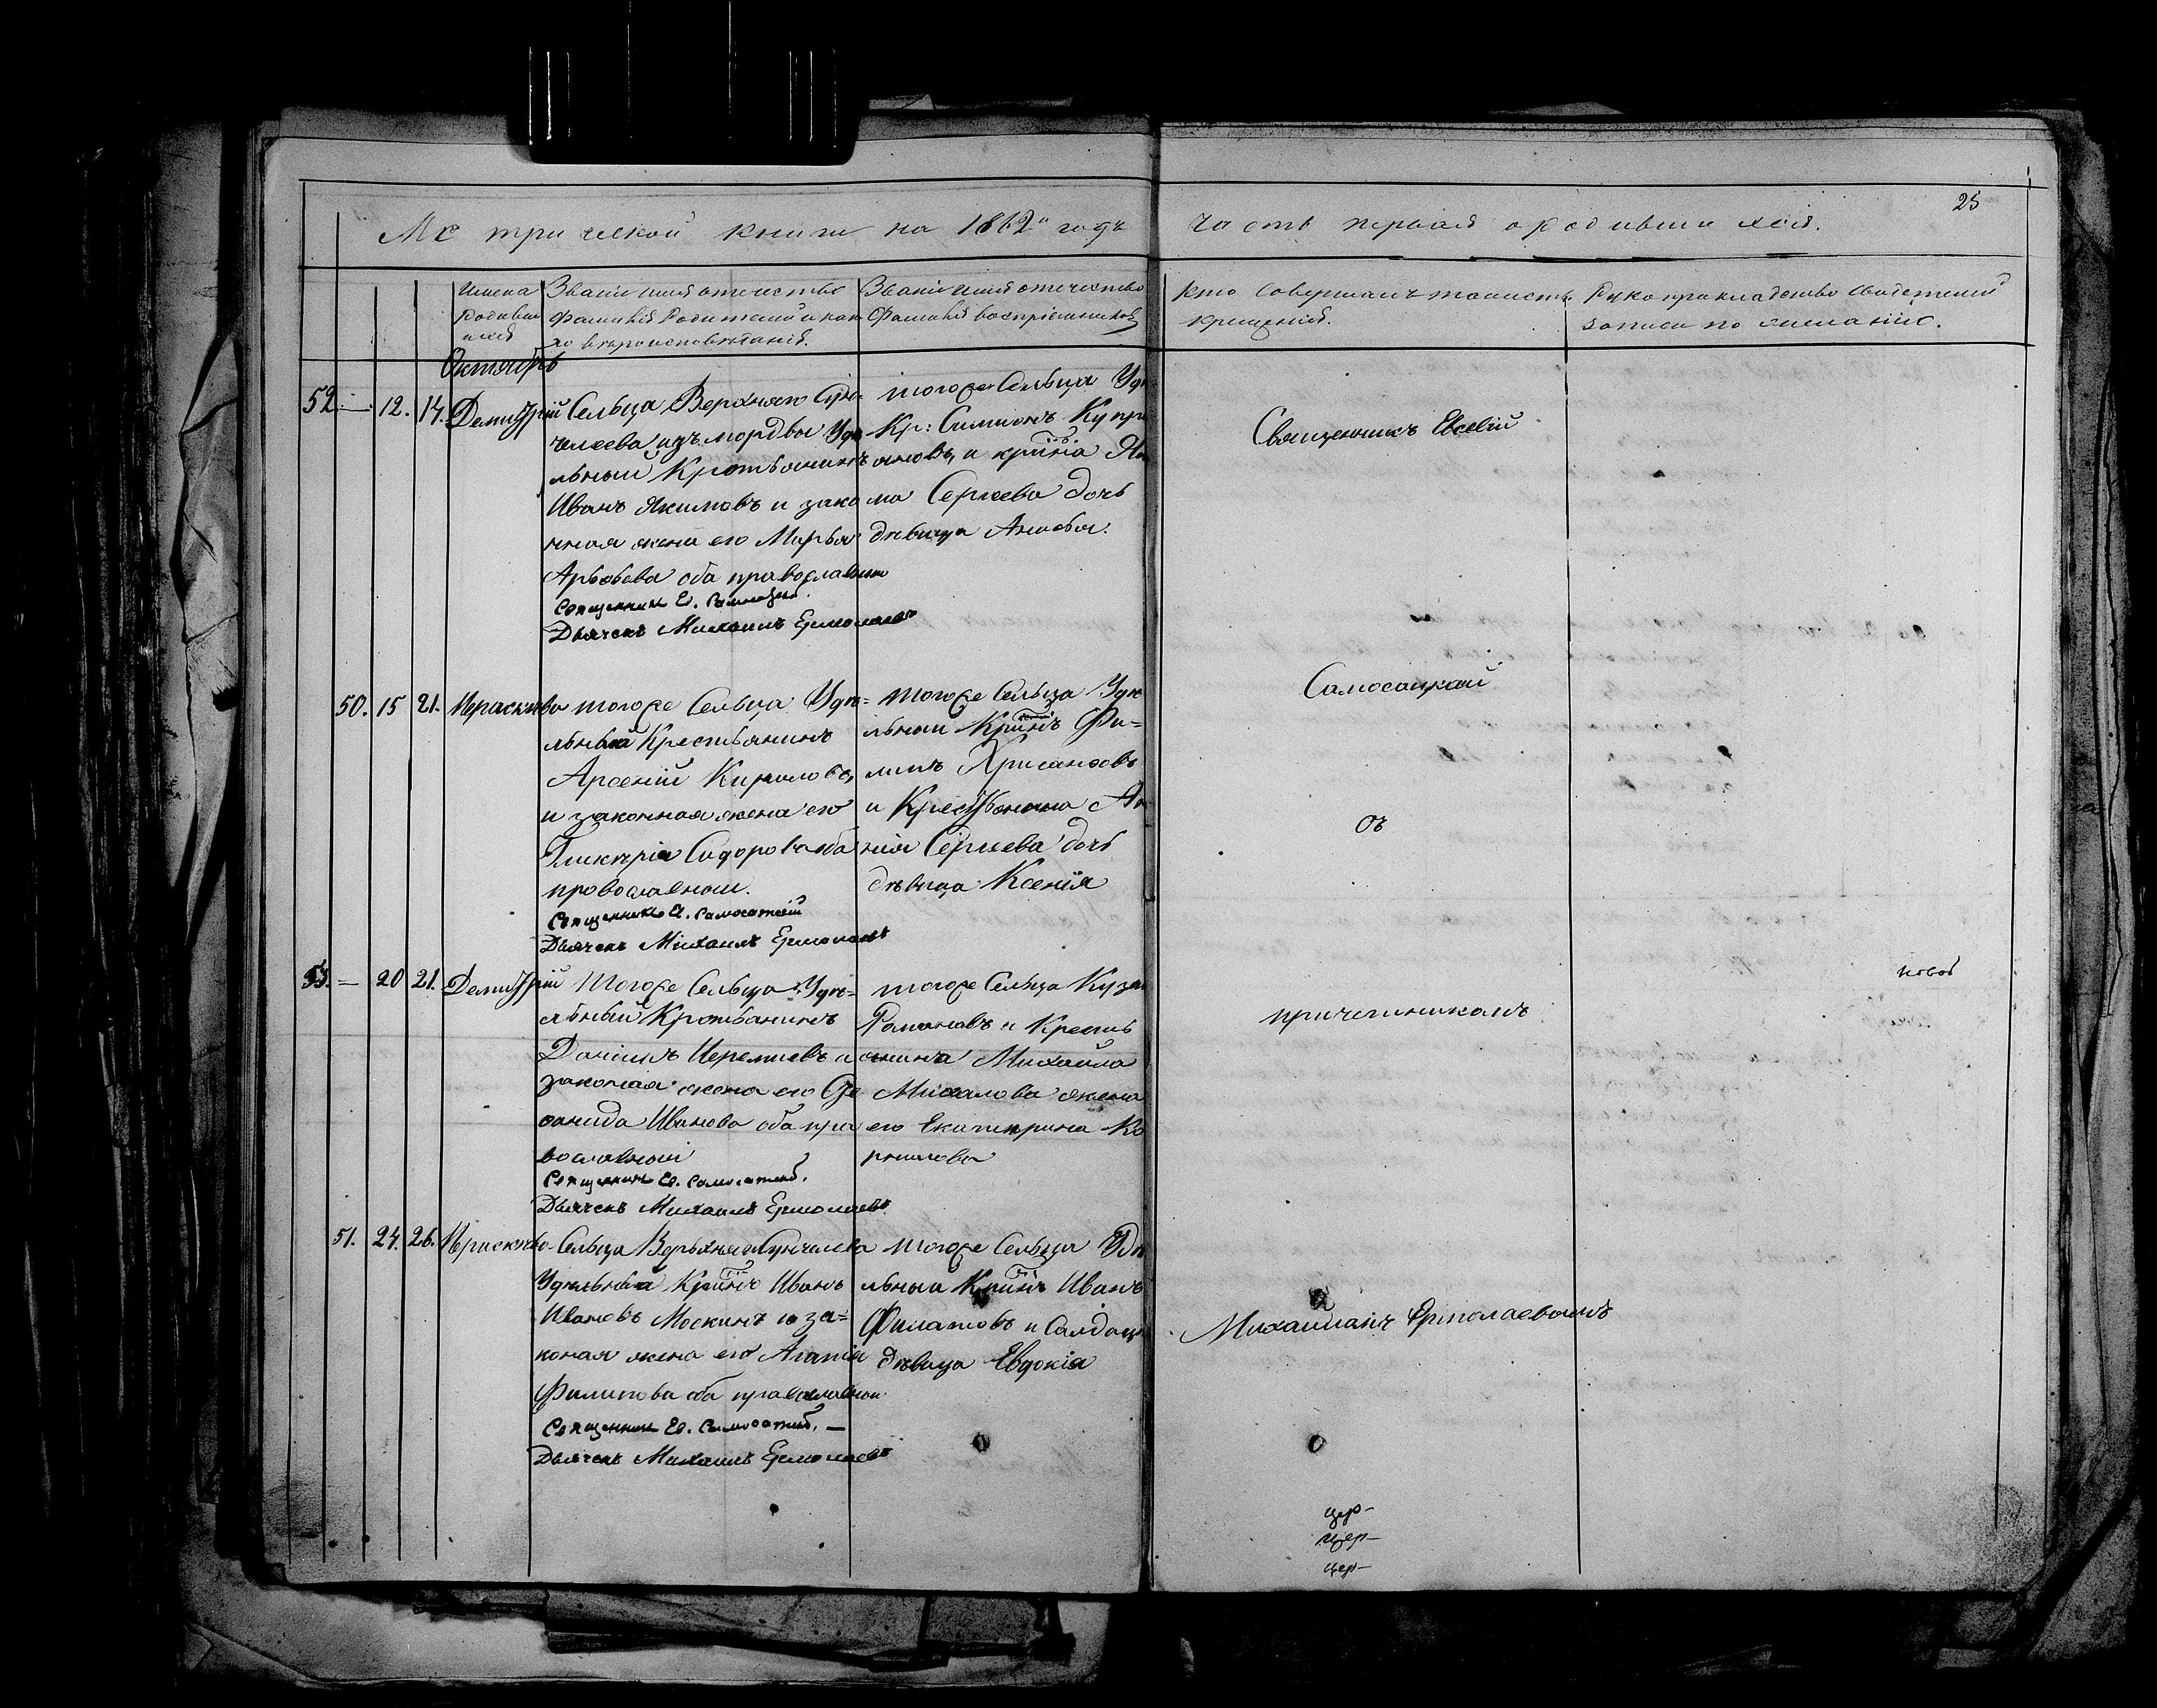 Метрической книги на 1862й годъ часть первая о родившихся.
25
Имена родившихся
Званіе имя отечество фамилія Родителей и какого вероисповѣданія.
Званіе имя отечество Фамилія воспріемниковъ
Кто Совершалъ таинство крещенія.
Рукоприкладство свидетелей записи по желанію.
Октябрь
52. — 12. 14. Демитрій
Сельца Верхняго Сун-
челеева изъ мордвы Удѣ
льный Крестьянинъ
Иванъ Якимовъ и зако
нная жена его Марья
оба православные
Священник Е. Самосацкій.
Дьячекъ Михаилъ Ермолаевъ
тогоже Сельца Удѣ
Кр: Симионъ Купри
ановъ, и кр͠нина
Сергеева дочь
дѣвица
Священникъ Евсевій
50. 15 21. Параскева
тогоже Сельца Удѣ=
льный Крестьянинъ
Арсеній Кириловъ,
и законная жена его
Гликерія Сидорова оба
православныи.
Священникъ Е. Самосатскій
Дьячекъ Михаилъ Ермолаевъ
тогоже Сельца Удѣ
льныи Кр͠нинъ Фи=
липъ Хрисанѳовъ
и Крестьянина
Сергеева дочь
дѣвица Ксенія
Самосацкій
съ
53. — 20 21. Демитрій
тогоже Сельца Удѣ=
льный Крестьянинъ
Даніилъ Иеремиевъ и
законая жена его Ѳе
Иванова оба пра
вославныи
Священникъ Е. Самосатскій.
Дьячекъ Михаилъ Ермолаевъ
тогоже Сельца Кузма
Романовъ и Кресть
янина Михайла
Михалова жена
его Екатерина Ко
рнилова
новой
причетникомъ
51. 24. 26. Параскева
Сельца Верхняго Сунчелева
Удельный Кр͠нинъ Иванъ
Ивановъ Москинъ и за=
коная жена его Агапія
Филипова оба православныи
Священник Е. Самосатскій. —
Дьячекъ Михаилъ Ермолаевъ
тогоже Сельца Удѣ
льныи Кр͠нинъ Иванъ
Филатовъ и Салдацк
дѣвица Евдокія
Михаиломъ Ермолаевымъ
цер-
цер-
цер-